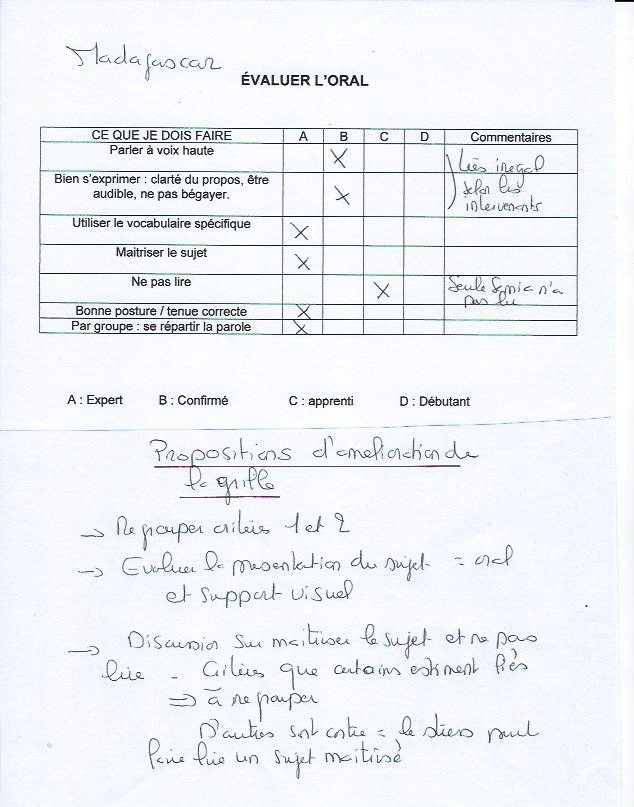 Madagascar
ÉVALUER L'ORAL
CE QUE JE DOIS FAIRE A B C D Commentaires
Parler à voix haute X
Bien s'exprimer : clarté du propos, être
audible, ne pas bégayer. X
très inégal
selon les
intervenants
Utiliser le vocabulaire spécifique X
Maitriser le sujet X
Ne pas lire X
Seule n'a
pas lu
Bonne posture / tenue correcte X
Par groupe : se répartir la parole X
A : Expert B : Confirmé C : apprenti D : Débutant
Propositions d'amélioration de
la grille
→ Regrouper critères 1 et 2
→ Evaluer la présentation du sujet = oral
et support visuel
→ Discussion sur maitriser le sujet et ne pas
lire - Critères que certains estiment liés
⇒ à regrouper
D'autres sont contre = le stress peut
faire lire un sujet maitrisé